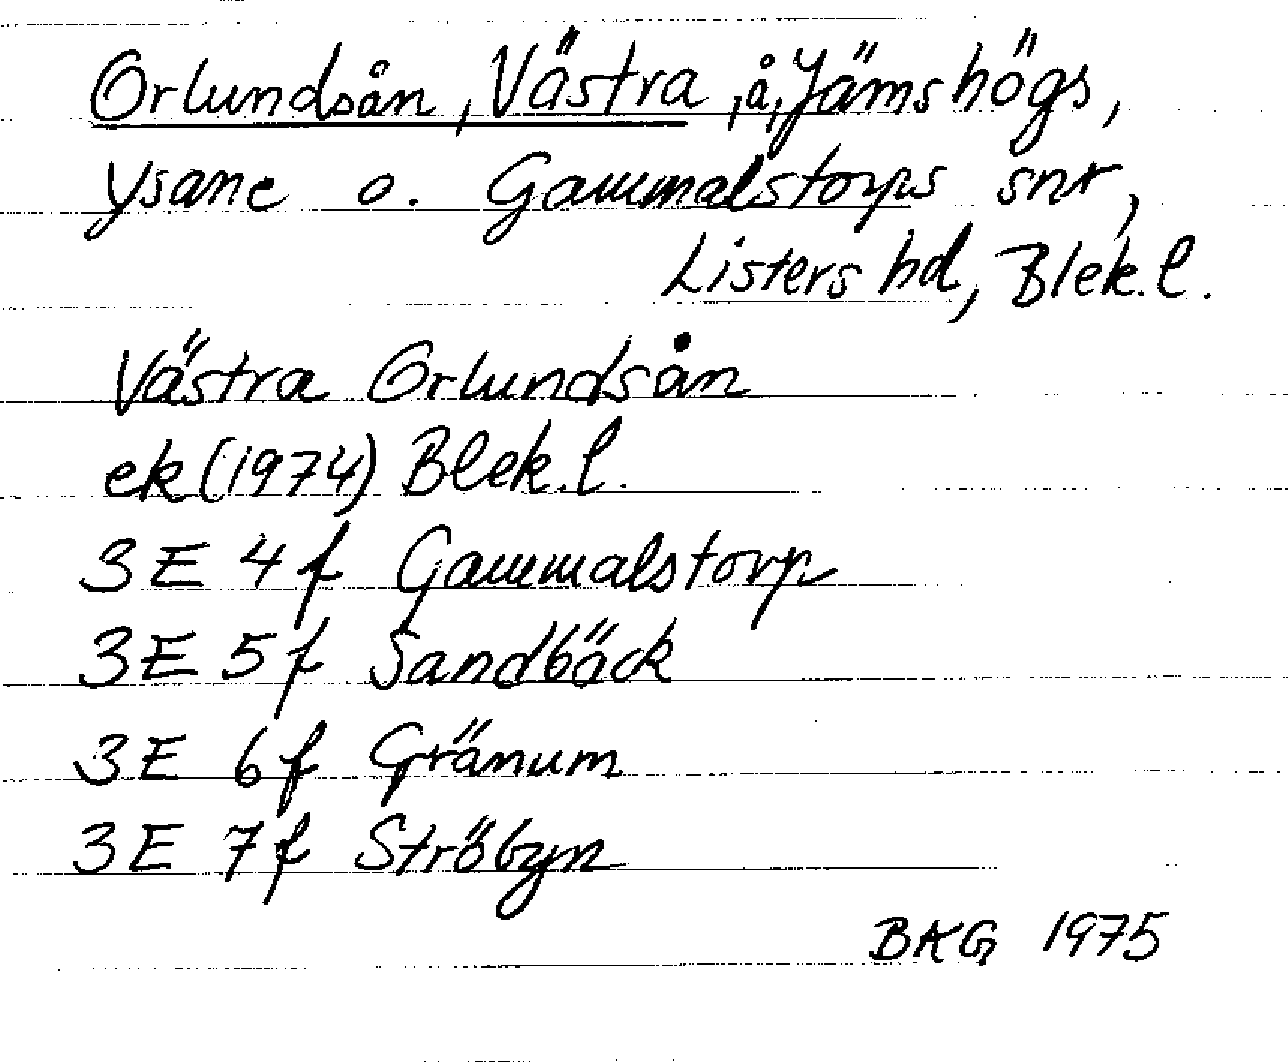 Orlundsån, Västra, å, Jämshögs,
Ysane o. Gammalstorps snr,
Listers hd, Blek. l.
Västra Orlundsån
ek (1974) Blek. l.
3 E 4 f Gammalstorp
3 E 5 f Sandbäck
3 E 6 f Gränum
3 E 7 f Ströbyn
BKG 1975